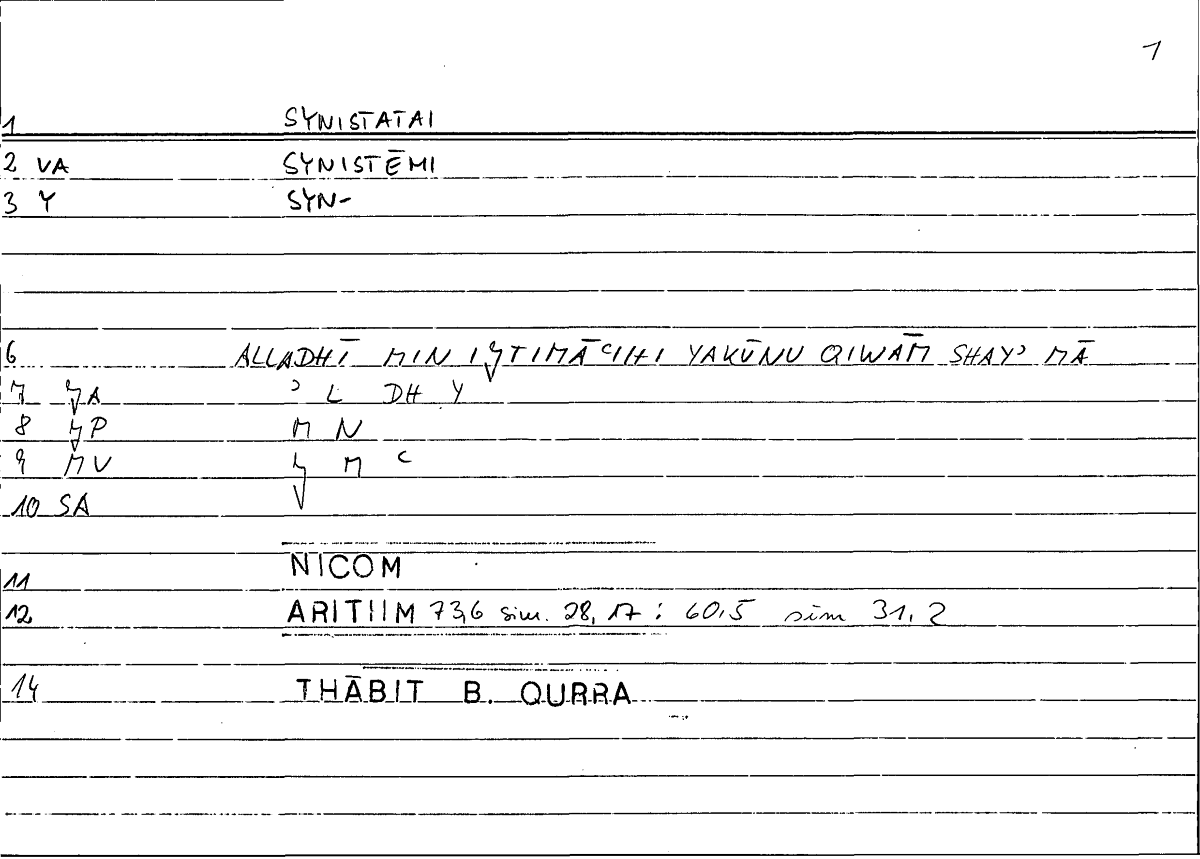 1
1 SYNISTATAI
2 VA SYNISTĒMI
3 Y SYN-
6 ALLADHĪ MIN IǦTIMĀʿIHI YAKŪNU QIWĀM SHAYʾ MĀ
7 ǦA ʾ L DH Y
8 ǦP M N
9 MV Ǧ M ʿ
10 SA
11 NICOM
12 ARITIIM 73,6 sim. 28,17 : 60,5 sim 31,2
14 THĀBIT B. QURRA